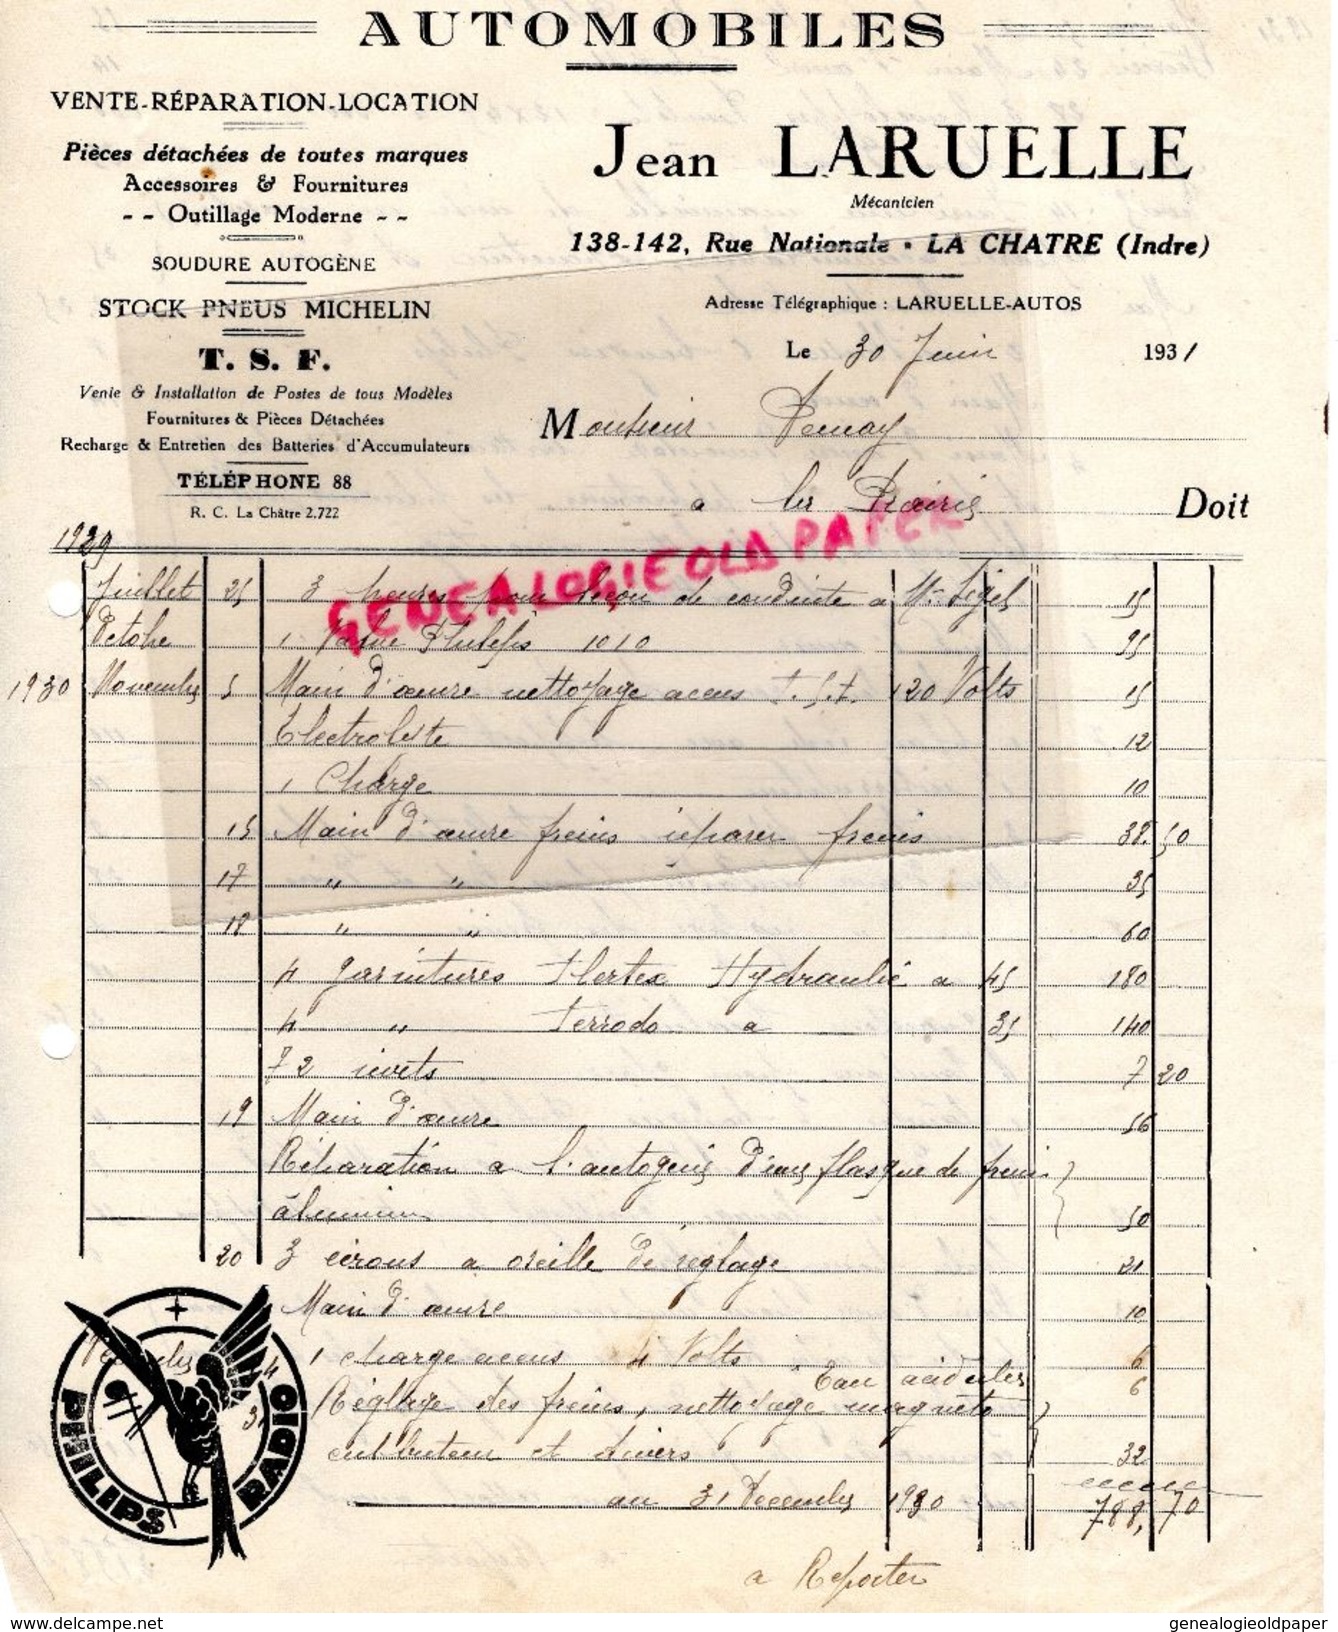 AUTOMOBILES
VENTE-RÉPARATION-LOCATION
Pièces détachées de toutes marques
Accessoires & Fournitures
- - Outillage Moderne - -
SOUDURE AUTOGÈNE
STOCK PNEUS MICHELIN
T. S. F.
Vente & Installation de Postes de tous Modèles
Fournitures & Pièces Détachées
Recharge & Entretien des Batteries d'Accumulateurs
TÉLÉPHONE 88
R. C. La Châtre 2.722
Jean LARUELLE
Mécanicien
138-142, Rue Nationale • LA CHATRE (Indre)
Adresse Télégraphique : LARUELLE-AUTOS
Le 30 Juin 1931
Monsieur
a les Doit
GENEALOGIE OLD PAPER
1929
Juillet 25 3 heures pour leçon de conduite a Mr 15
Octobre 1 Philips 1010 95
1930 Novembre 5 Main d'œuvre nettoyage accus T.S.F. 120 Volts 15
Electrolyte 12
1 Charge 10
15 Main d'œuvre freins réparer freins 38. 50
17 " " 35
18 " " 60
4 garnitures Flertex Hydraulic a 45 180
4 " Ferrodo a 35 140
72 rivets 7 20
19 Main d'œuvre 56
Réparation a l'autogène d'une flasque de frein
aluminium 50
20 3 écrous a oreille de réglage 21
Main d'œuvre 10
4 1 charge accus 4 Volts 6
Eau acidulée 6
31 Réglage des freins, nettoyage magnéto
et divers 32
au 31 Décembre 1930 788,70
a Reporter
PHILIPS RADIO
www.delcampe.net
genealogieoldpaper